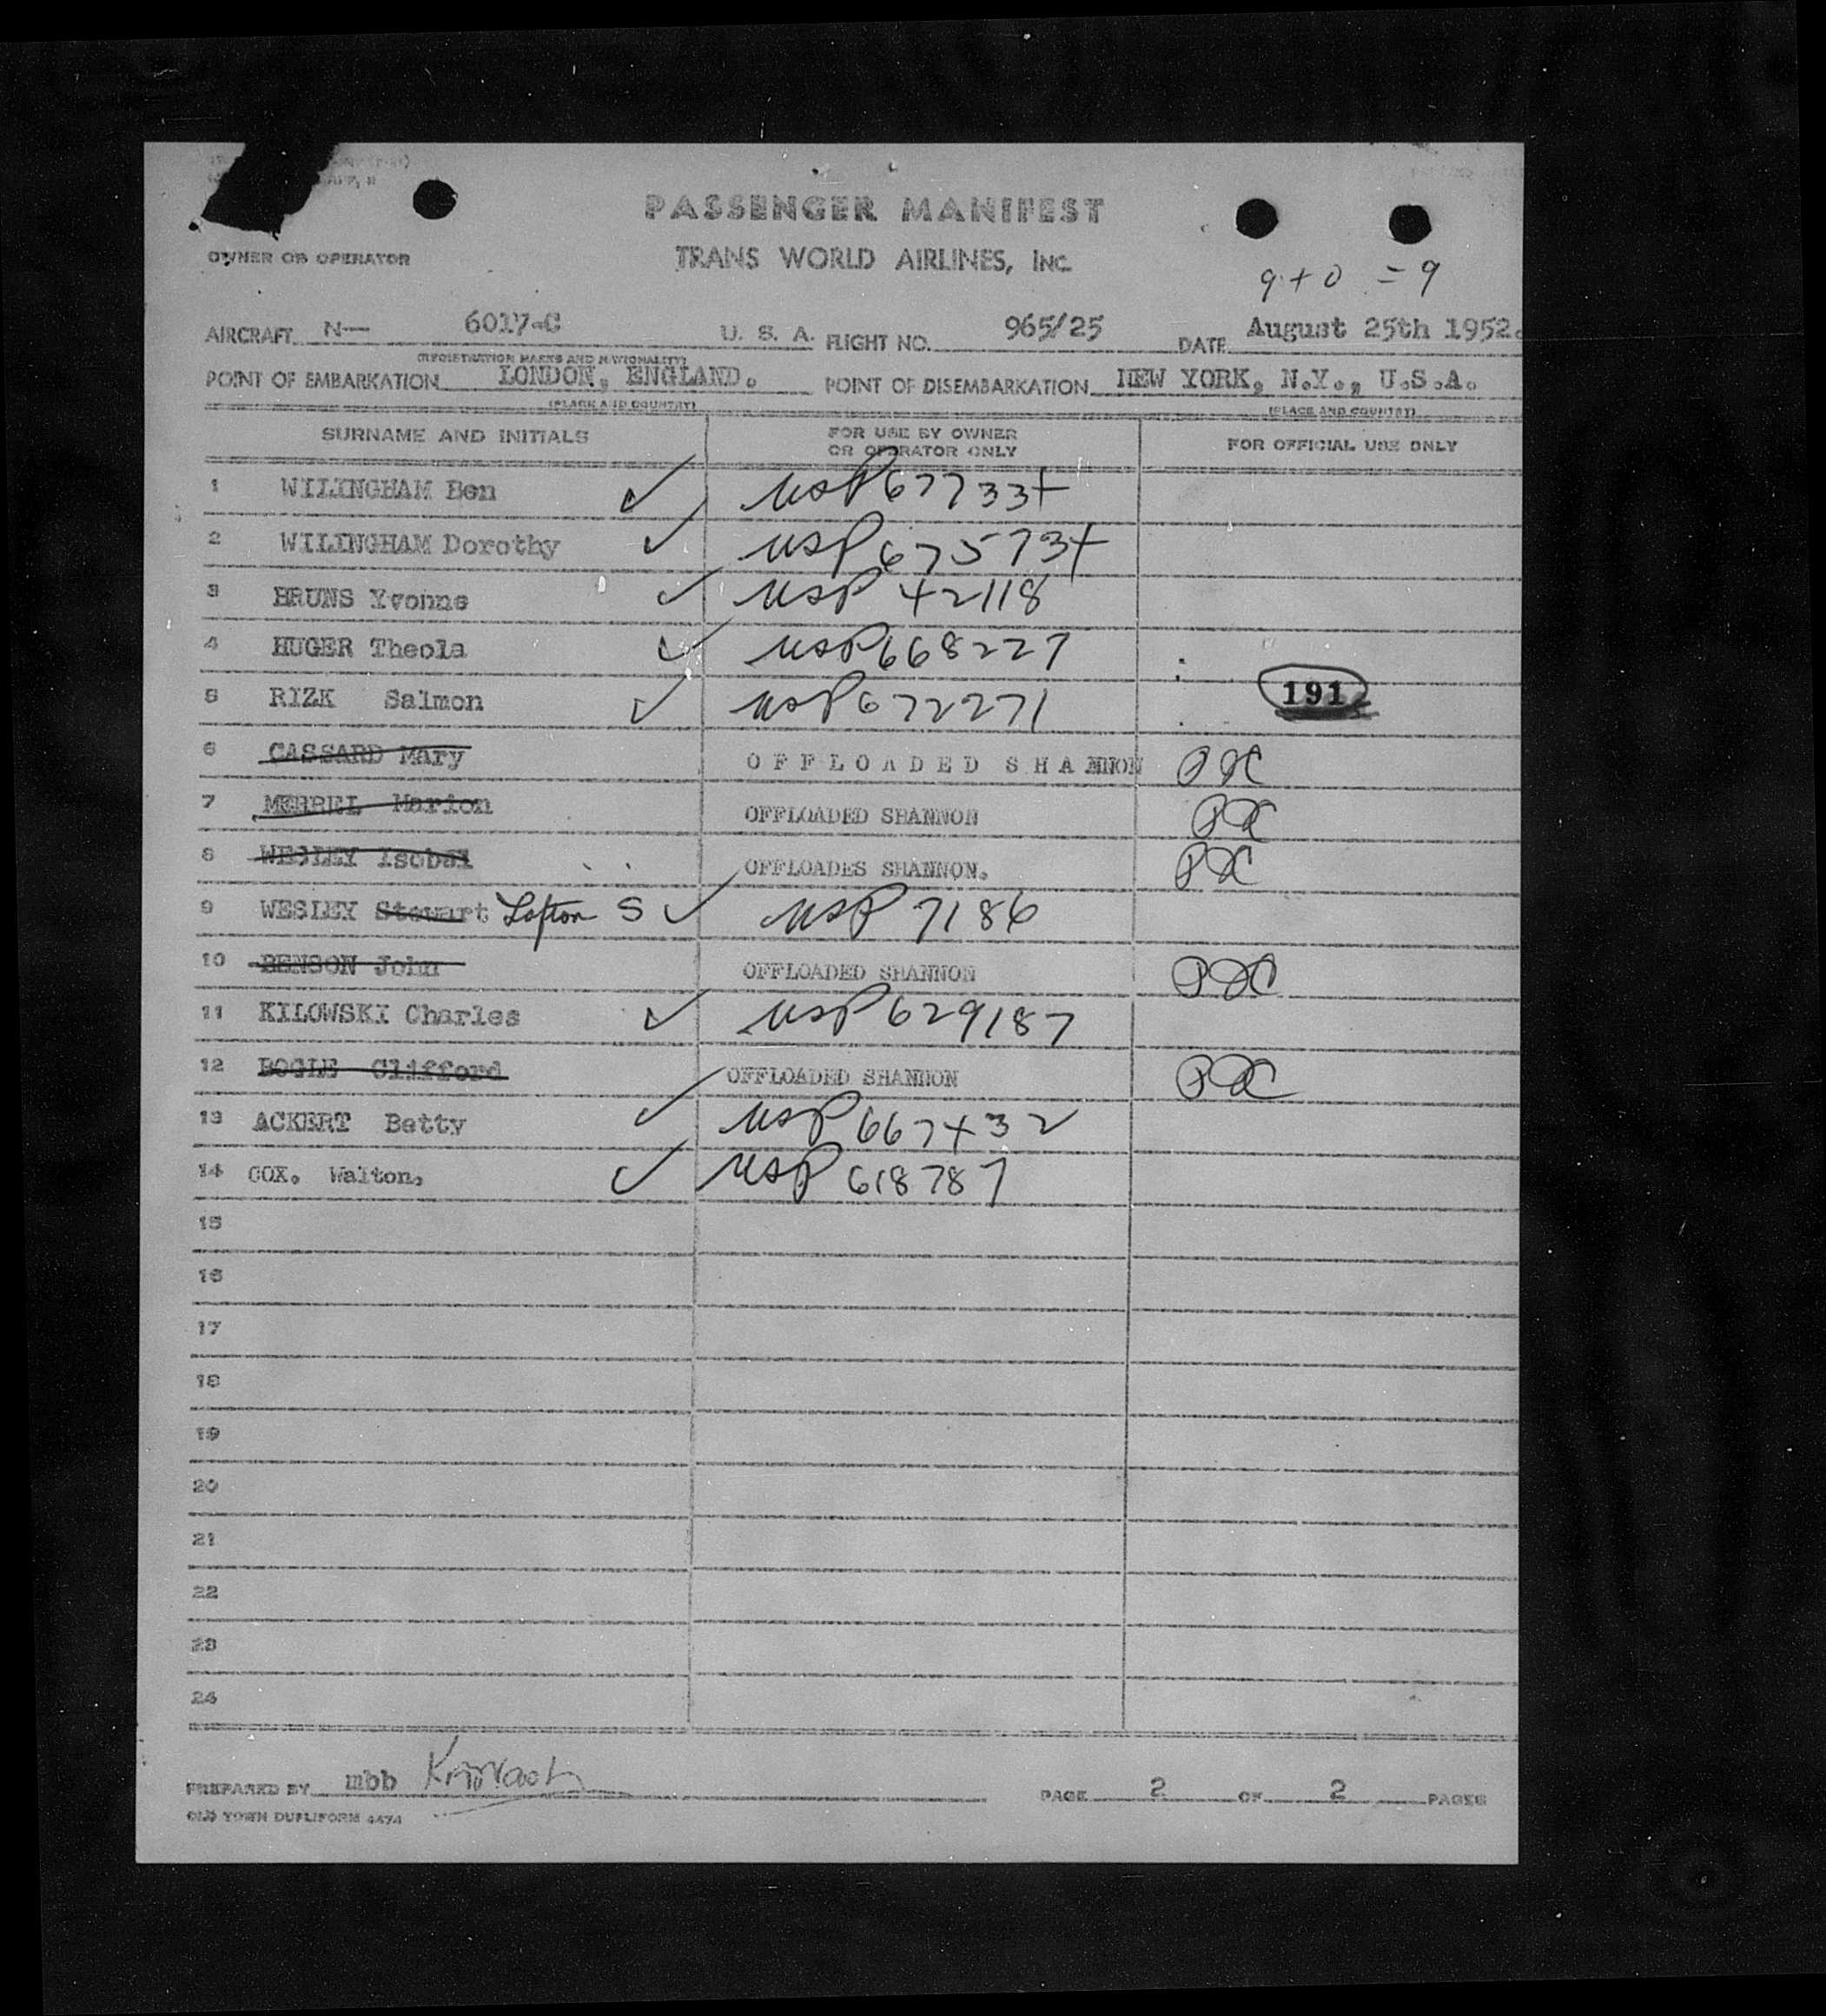 PASSENGER MANIFEST
OWNER OR OPERATOR TRANS WORLD AIRLINES, INC.
9+0 = 9
AIRCRAFT N— 6017-C U. S. A. FLIGHT NO. 965/25 DATE August 25th 1952.
(REGISTRATION MARKS AND NATIONALITY)
POINT OF EMBARKATION LONDON, ENGLAND. POINT OF DISEMBARKATION NEW YORK, N.Y., U.S.A.
(PLACE AND COUNTRY) (PLACE AND COUNTRY)
SURNAME AND INITIALS FOR USE BY OWNER OR OPERATOR ONLY FOR OFFICIAL USE ONLY
1 WILINGHAM Ben ✓ USP 677334
2 WILINGHAM Dorothy ✓ USP 675734
3 BRUNS Yvonne ✓ USP 42118
4 HUGER Theola ✓ USP 668227
5 RIZK Salmon ✓ USP 672271 191
6 CASSARD Mary OFFLOADED SHANNON
7 MERREL Marion OFFLOADED SHANNON
8 WESLEY Isobel OFFLOADES SHANNON.
9 WESLEY Stewart Lofton S ✓ USP 7186
10 BENSON John OFFLOADED SHANNON
11 KILOWSKI Charles ✓ USP 629187
12 BOGLE Clifford OFFLOADED SHANNON
13 ACKERT Betty ✓ USP 667432
14 COX. Walton. ✓ USP 618787
15
16
17
18
19
20
21
22
23
24
PREPARED BY mbb PAGE 2 OF 2 PAGES
OLD TOWN DUPLIFORM 4474